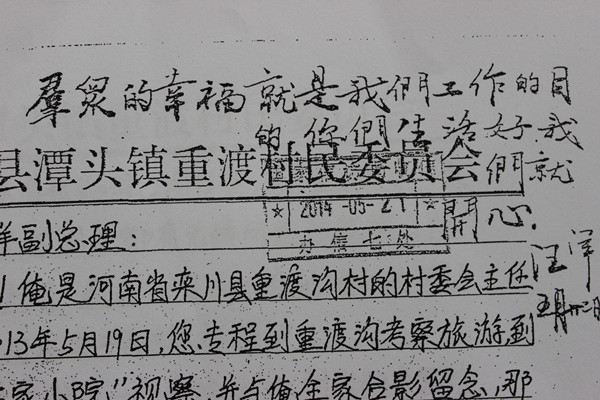 羣眾的幸福就是我們工作的目
的,你們生活好我
們就
開心.
汪洋
五月廿二日
县潭头镇重渡村民委员会
2014-05-21
办信七处
洋副总理:
俺是河南省栾川县重渡沟村的村委会主任
013年5月19日,您专程到重渡沟考察旅游,到
家小院"视察,并与俺全家合影留念,那